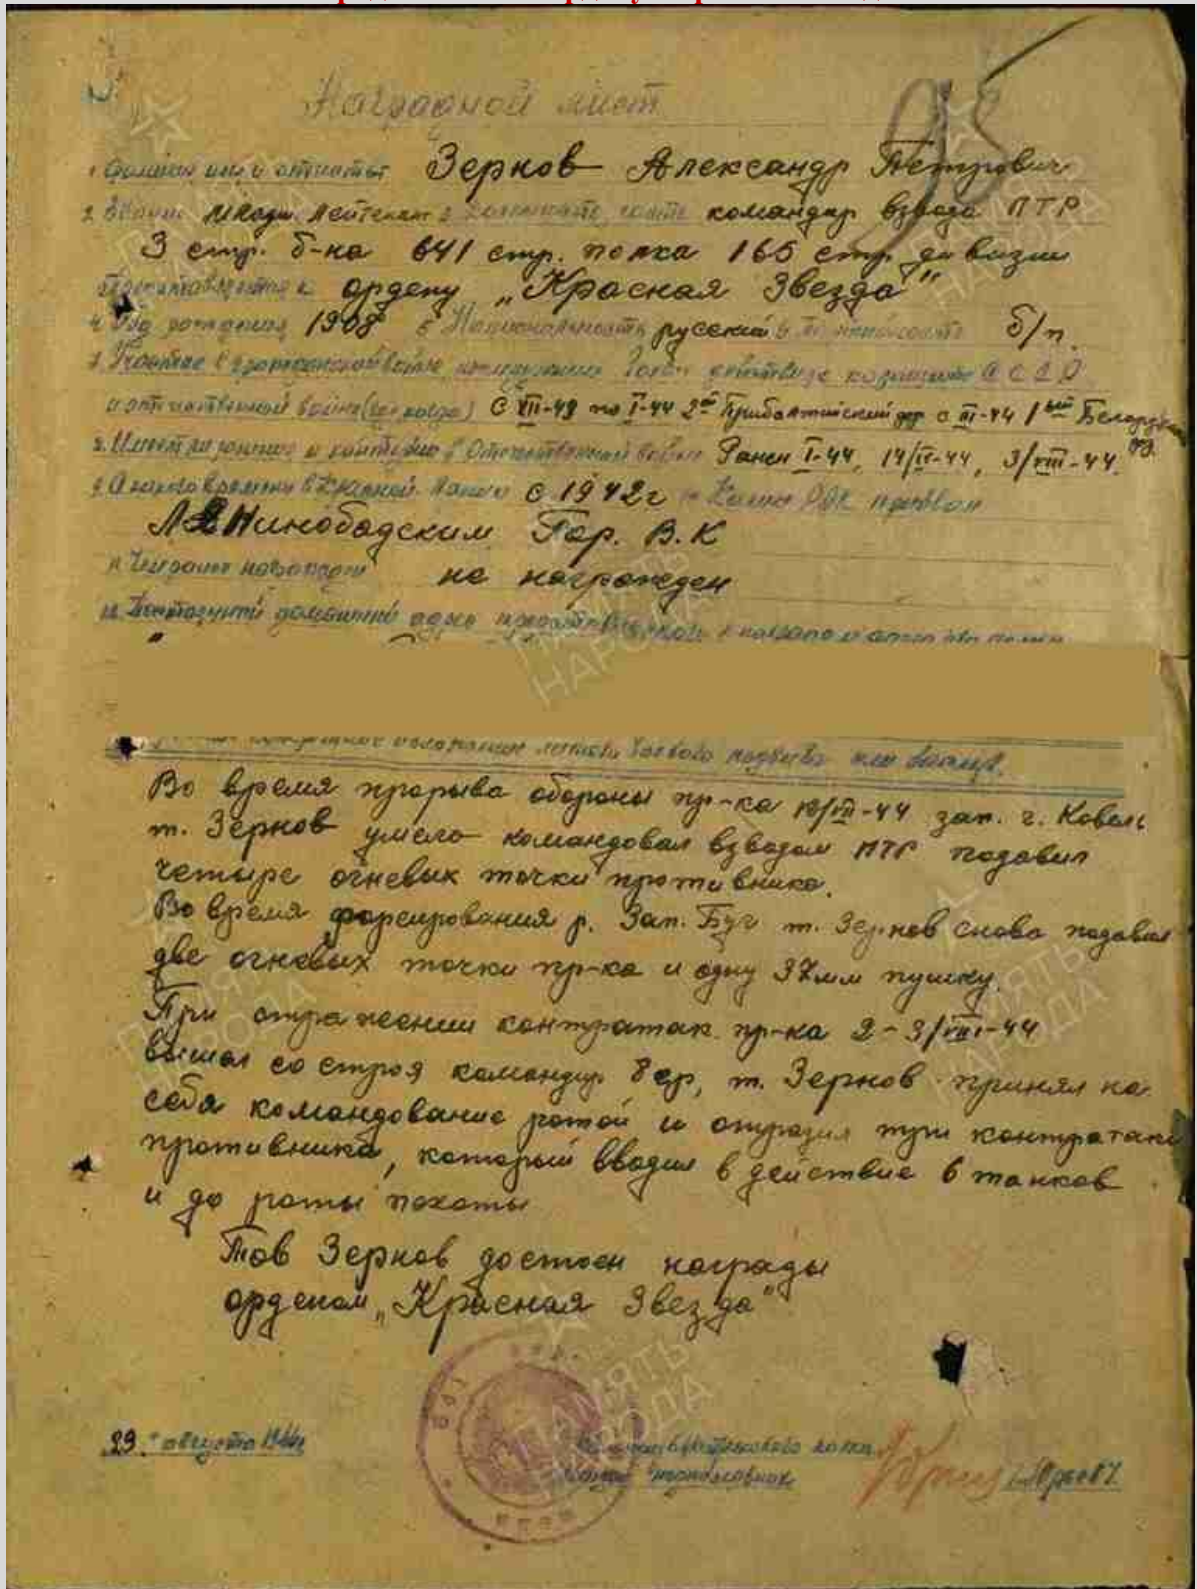 93
Наградной лист
1. Фамилия имя и отчество Зернов Александр Петрович
2. Звание младш. лейтенант 3. должность, часть командир взвода ПТР
3 стр. б-на 641 стр. полка 165 стр. дивизии
Представляется к ордену „Красная Звезда"
4. Год рождения 1908 5. Национальность русский 6. Партийность б/п.
7. Участие в гражданской войне, последующих боевых действиях по защите СССР
и отечественной войне (где когда) С XII-43 по I-44 2ой Прибалтийский фр с III-44 1ый Белорусский
фр.
8. Имеет ли ранения и контузии в Отечественной войне Ранен I-44, 14/II-44, 3/VIII-44.
9. С какого времени в Красной Армии с 1942г 10. Каким РВК призван
Ленинободским Гор. В.К
11. Чем ранее награжден не награжден
12. Постоянный домашний адрес
конкретное изложение личного боевого подвига или заслуг.
Во время прорыва обороны пр-ка 18/VII-44 зап. г. Ковель
т. Зернов умело командовал взводом ПТР подавил
четыре огневых точки противника.
Во время форсирования р. Зап. Буг т. Зернов снова подавил
две огневых точки пр-ка и одну 37мм пушку.
При отражении контратак пр-ка 2-3/VIII-44
вышел со строя командир 8 ср, т. Зернов принял на
себя командование ротой и отразил три контратаки
противника, который вводил в действие 6 танков
и до роты пехоты
Тов Зернов достоен награды
орденом „Красная Звезда"
29. августа 1944г
стрелкового полка
подполковник
ПАМЯТЬ
НАРОДА